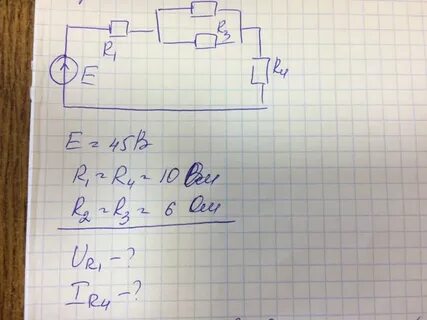 R₁
R₃
E
R₄
E = 45В
R₁ = R₄ = 10 Ом
R₂ = R₃ = 6 Ом
U_R₁ - ?
I_R₄ - ?